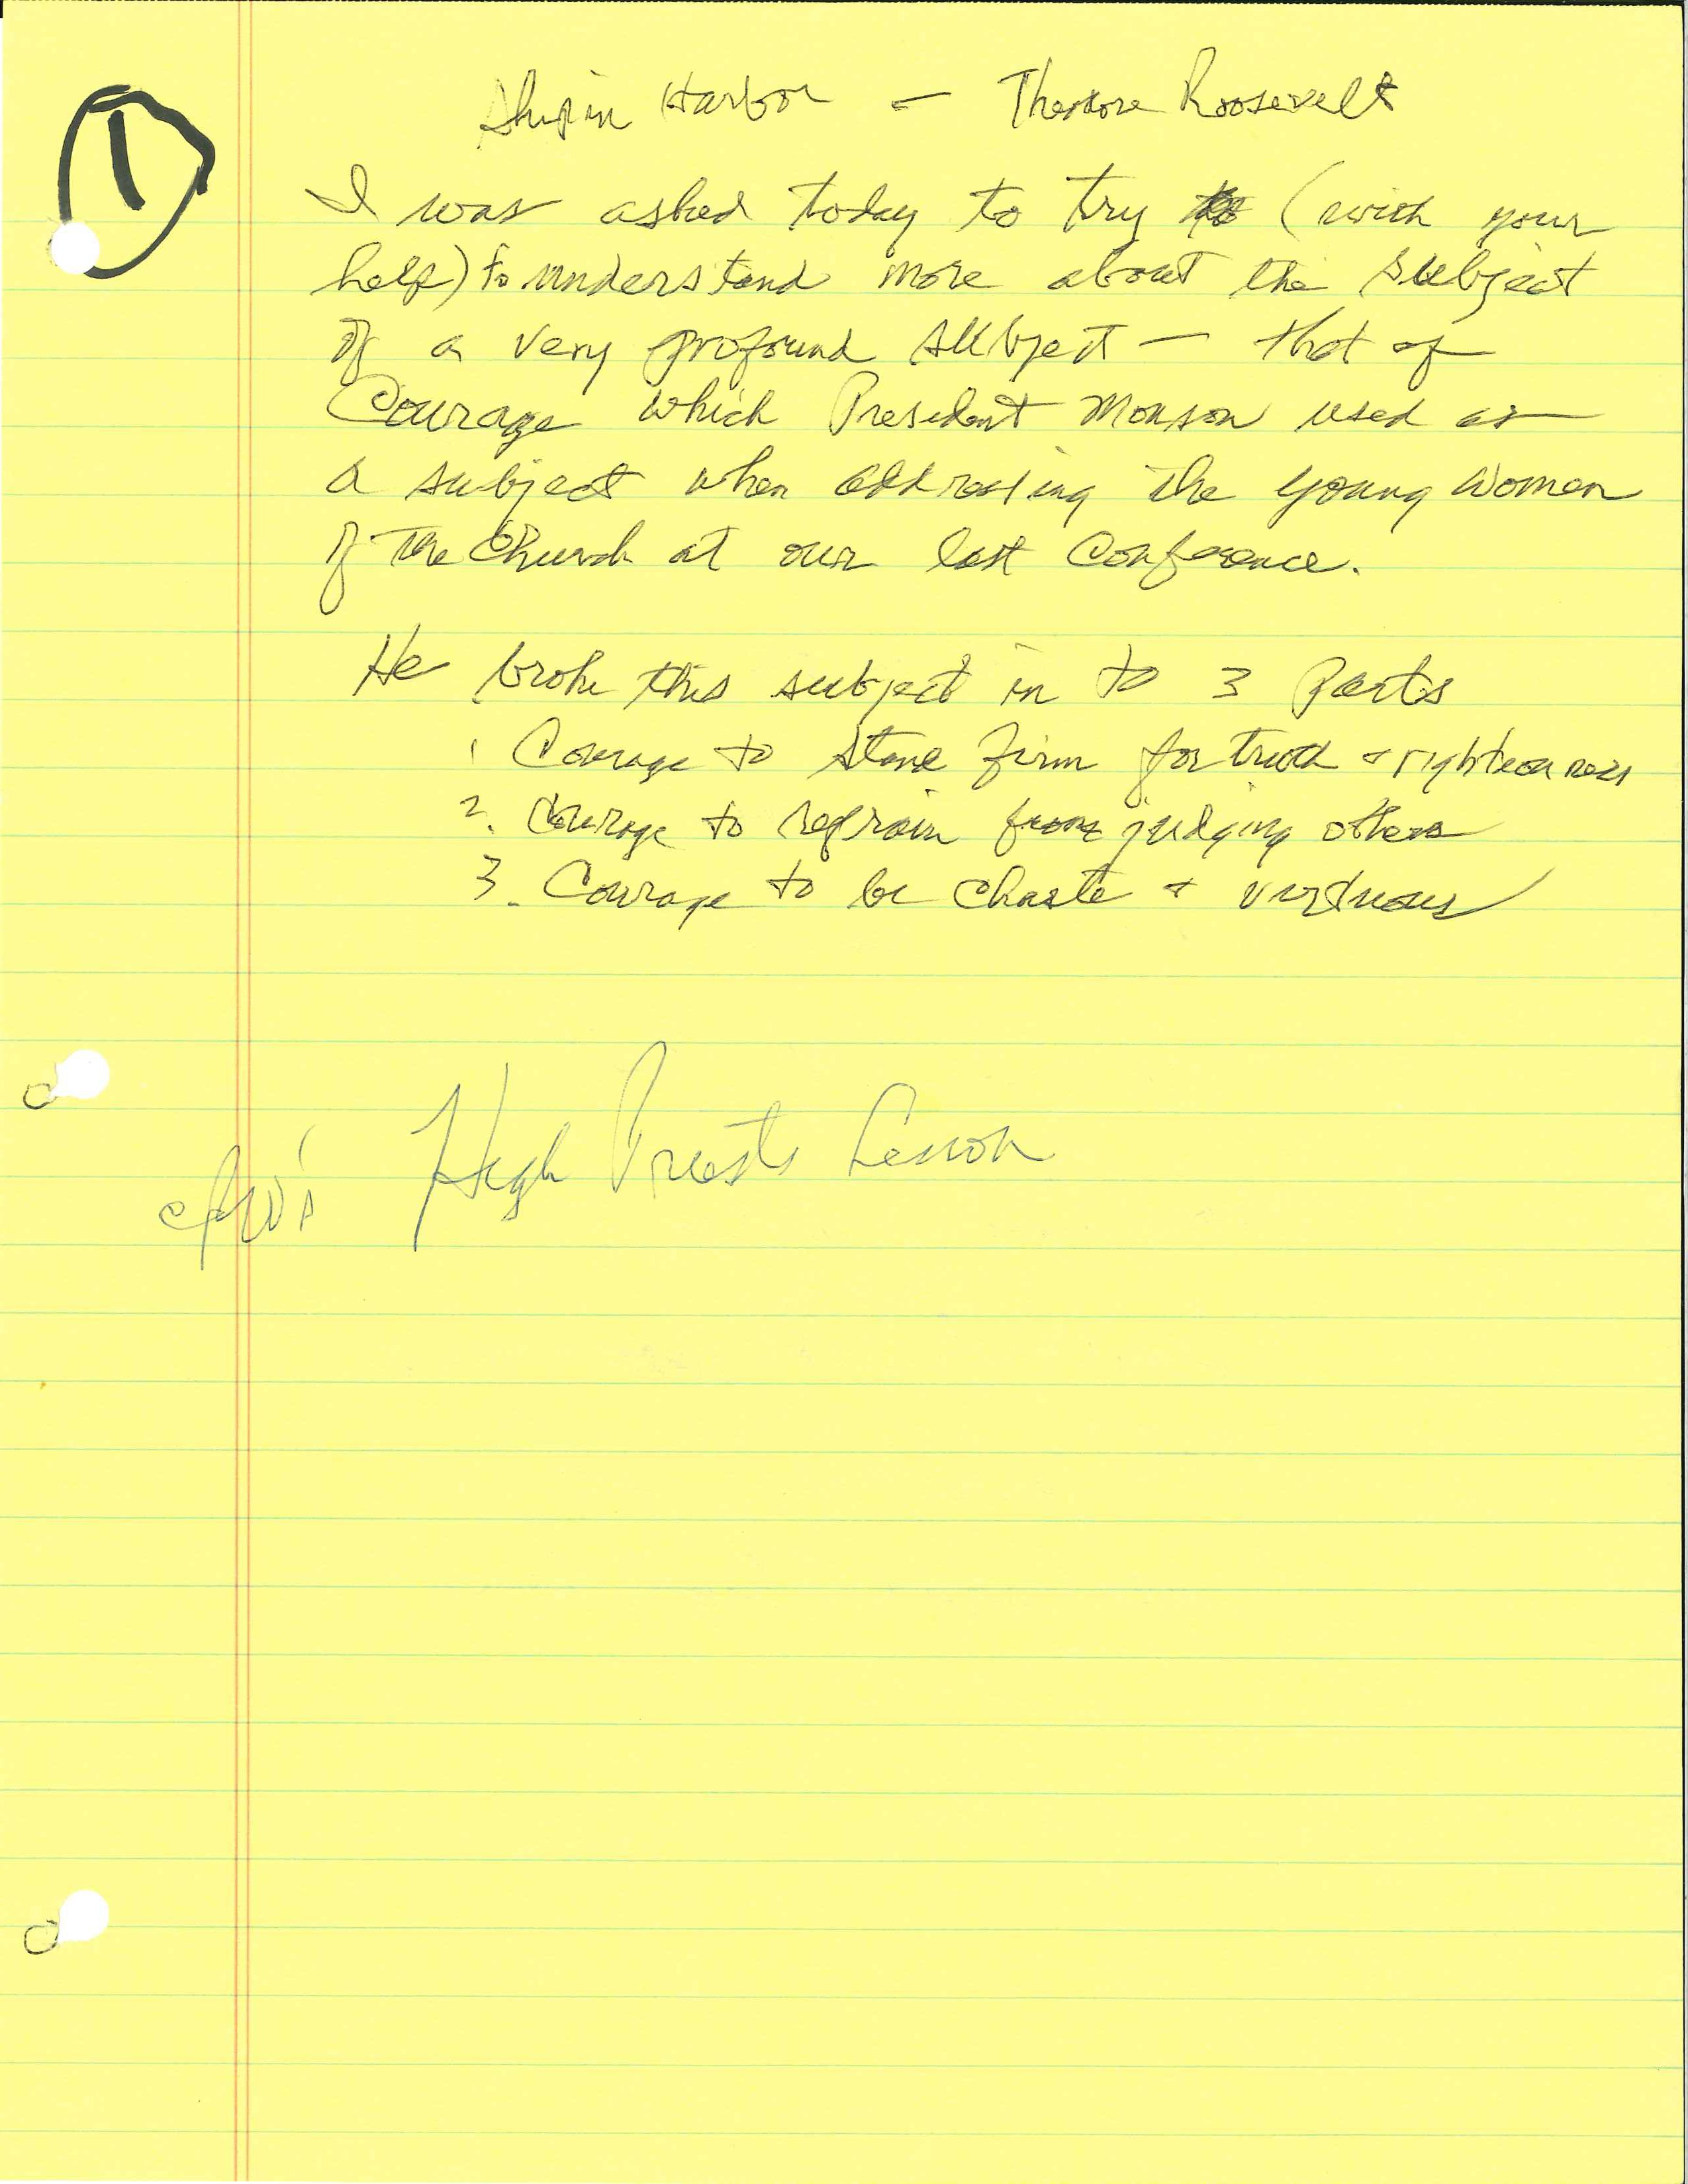 1
Ship in Harbor — Theodore Roosevelt
I was asked today to try (with your
help) to understand more about the subject
of a very profound subject — that of
Courage which President Monson used as
a subject when addressing the young women
of the Church at our last Conference.
He broke this subject in to 3 parts
1 Courage to stand firm for truth + righteousness
2. Courage to refrain from judging others
3. Courage to be chaste + virtuous
High Priests Lesson